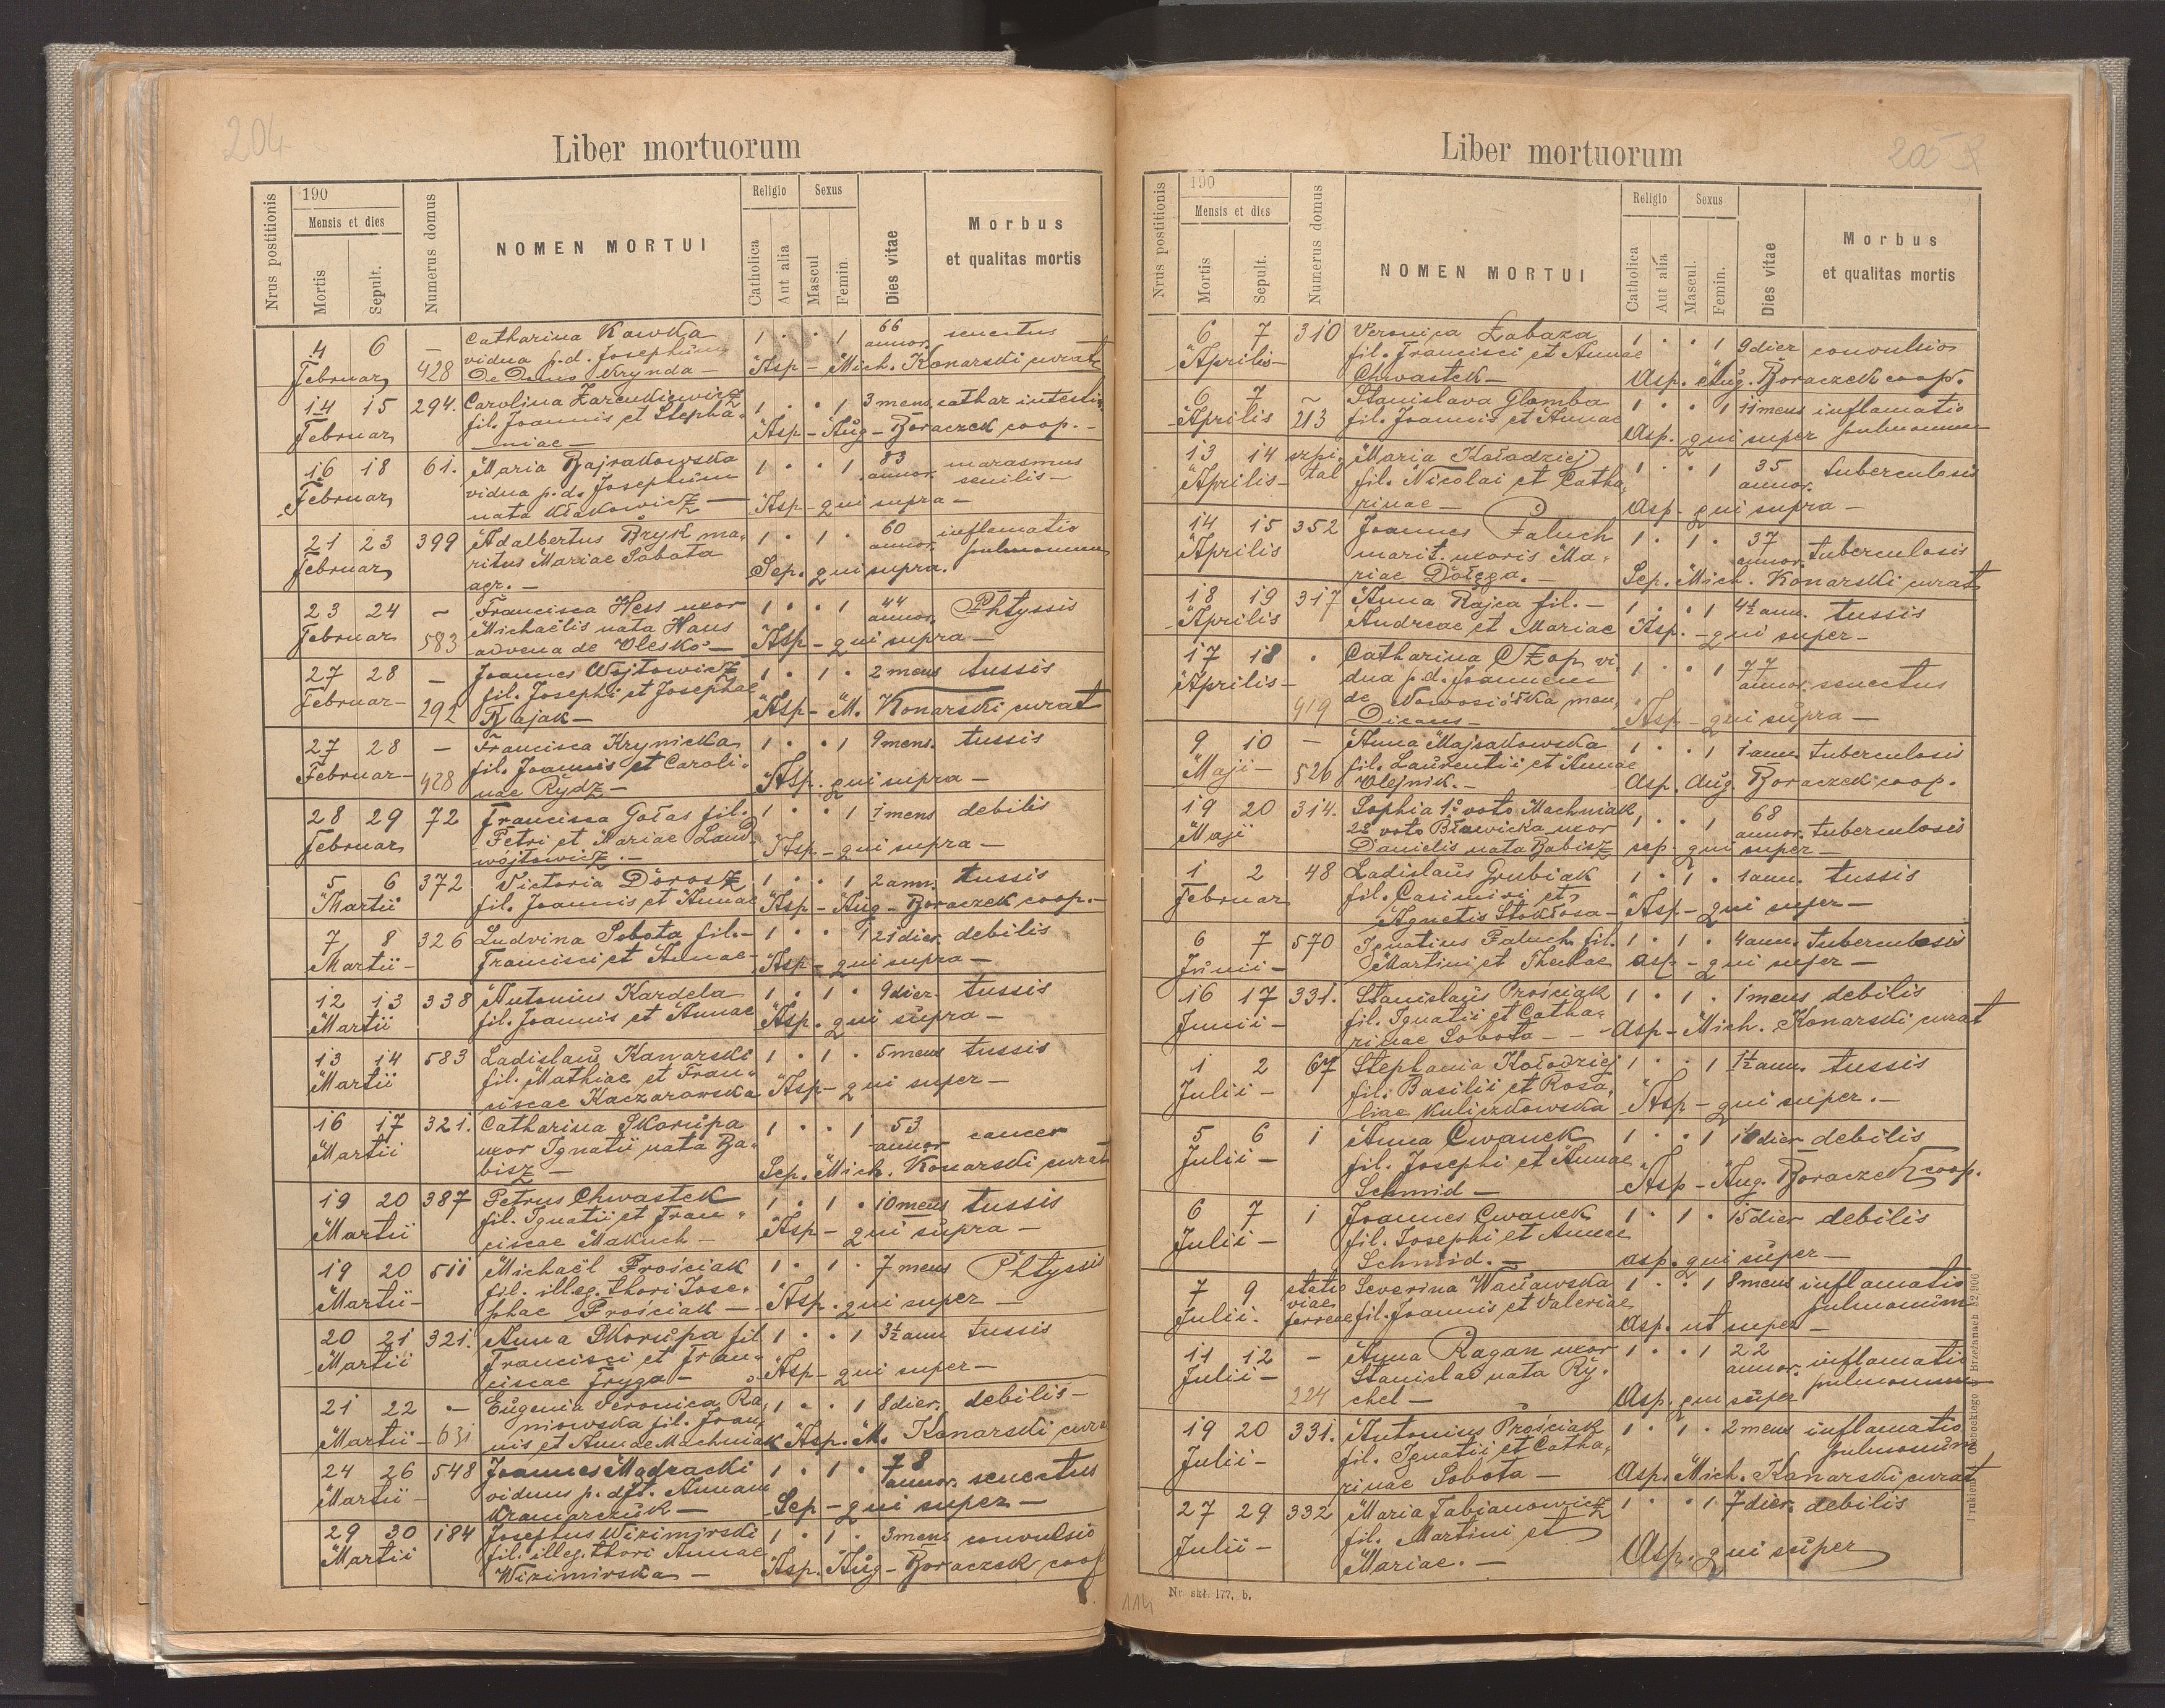 204
Liber mortuorum
Nrus postitionis
190
Mensis et dies
Mortis
Sepult.
Numerus domus
NOMEN MORTUI
Religio
Catholica
Aut alia
Sexus
Mascul
Femin
Dies vitae
Morbus
et qualitas mortis
4 6 — Catharina Kawka 1 · · 1 66 senectus
Februar 428 vidua p.d. Josephum annor.
Krynda — Asp — Mich. Konarski curat
14 15 294. Carolina Zarenkiewicz 1 · · 1 3 mens. cathar intestin.
Februar fil. Joannis et Stepha-
niae — Asp — Aug — Boraczek coop. —
16 18 61. Maria Bajrakowska 1 · · 1 83 marasmus
Februar vidua p.d. Josephum annor. senilis —
nata Kłakowicz — Asp — qui supra —
21 23 399 Adalbertus Bryk ma- 1 · 1 · 60 inflamatio
Februar ritus Mariae Sobota annor. pulmonum
agr. — Sep. qui supra.
23 24 — Francisca Hess uxor 1 · · 1 44 Phtyssis
Februar 583 Michaëlis nata Haus annor.
advena de Olesko — Asp — qui supra —
27 28 — Joannes Wojtowicz 1 · 1 · 2 mens tussis
Februar — 292 fil. Josephi et Josephae
Rajak — Asp — M. Konarski curat
27 28 — Francisca Krynicka 1 · · 1 9 mens. tussis
Februar — 428 fil. Joannis et Caroli-
nae Rydz — Asp. qui supra —
28 29 72 Francisca Gołas fil. 1 · · 1 1 mens debilis
Februar Petri et Mariae Land
wójtowicz. — Asp — qui supra —
5 6 372 Victoria Dorosz 1 · · 1 2 ann. tussis
Martii fil. Joannis et Annae Asp — Aug — Boraczek coop. —
7 8 326 Ludvina Sobota fil. — 1 · · 1 21 dier. debilis
Martii — Francisci et Annae — Asp — qui supra —
12 13 338 Antonius Kardela 1 · 1 · 9 dier. tussis
Martii fil. Joannis et Annae Asp. qui supra —
13 14 583 Ladislaus Kanarski 1 · 1 · 5 mens tussis
Martii fil. Mathiae et Fran-
ciscae Kaczarowska Asp — qui super —
16 17 321. Catharina Skorupa 1 · · 1 53 cancer
Martii uxor Ignatii nata Ba- annor
bisz — Sep. Mich. Konarski curat
19 20 387 Petrus Chwastek 1 · 1 · 10 mens tussis
Martii fil. Ignatii et Fran-
ciscae Makuch — Asp — qui supra —
19 20 511 Michaël Prościak 1 · 1 · 7 mens Phtyssis
Martii — fil. illeg. thori Jose-
phae Prościak — Asp. qui super —
20 21 321. Anna Skorupa fil 1 · · 1 3½ ann tussis
Martii Francisci et Fran-
ciscae Fryga — Asp — qui super —
21 22 — Eugenia Veronica Ra- 1 · · 1 8 dier. debilis —
Martii — 631 niowska fil. Joan-
nis et Annae Machniak Asp. M. Konarski cura
24 26 548 Joannes Mądracki 1 · 1 · 78 senectus
Martii — viduus p. dft. Annam annor.
Kramarczuk — Sep — qui super —
29 30 184 Josephus Wizimirski 1 · 1 · 3 mens convulsio
Martii fil. illeg. thori Annae
Wizimirska — Asp. Aug — Boraczek coop
205
Liber mortuorum
Nrus postitionis
190
Mensis et dies
Mortis
Sepult.
Numerus domus
NOMEN MORTUI
Religio
Catholica
Aut alia
Sexus
Mascul.
Femin.
Dies vitae
Morbus
et qualitas mortis
6 7 310 Veronica Łabaza 1 · · 1 9 dier convulsio
Aprilis — fil. Francisci et Annae
Chwastek — Asp. Aug. Boraczek coop.
6 7 — Stanislava Glomba 1 · · 1 11 mens inflamatio
Aprilis 213 fil. Joannis et Annae pulmonum
Asp. qui super
13 14 szpi- Maria Kołodziej 1 · · 1 35 tuberculosis
Aprilis — tal fil. Nicolai et Catha- annor.
rinae — Asp. qui supra —
14 15 352 Joannes Paluch 1 · 1 · 37 tuberculosis
Aprilis marit. uxoris Ma- annor.
riae Dołęga. — Sep. Mich. Konarski curat
18 19 317 Anna Rajca fil. — 1 · · 1 4½ ann. tussis
Aprilis Andreae et Mariae Asp. — qui super —
17 18 · Catharina Czop vi- 1 · · 1 77 senectus
Aprilis — dua p.d. Joannem annor.
919 de Nowosiółka men-
dicans — Asp — qui supra —
9 10 — Anna Majsakowska 1 · · 1 1 ann. tuberculosis
Maji — 526 fil. Laurentii et Annae
Olejnik. — Asp. Aug. Boraczek coop.
19 20 314. Sophia 1° voto Machniak 1 · · 1 68 tuberculosis
Maji 2° voto Bławicka uxor annor.
Danielis nata Babisz sep — qui super —
1 2 48 Ladislaus Grubiak 1 · 1 · 1 ann. tussis
Februar fil. Casimiri et
Agnetis Stokłosa — Asp — qui super —
6 7 570 Ignatius Paluch fil. 1 · 1 · 4 ann. tuberculosis
Junii — Martini et Theclae asp — qui super —
16 17 331. Stanislaus Prościak 1 · 1 · 1 mens debilis
Junii — fil. Ignatii et Catha-
rinae Sobota — Asp — Mich. Konarski curat
1 2 67 Stephania Kołodziej 1 · · 1 1½ ann. tussis
Julii — fil. Basilii et Rosa-
liae Kuliczkowska Asp — qui super. —
5 6 1 Anna Cwanek 1 · · 1 10 dier debilis
Julii — fil. Josephi et Annae
Schmid — Asp — Aug. Boraczek coop.
6 7 1 Joannes Cwanek 1 · 1 · 15 dier debilis
Julii — fil. Josephi et Annae
Schmid. — asp. qui super —
7 9 statio Severina Wacławska 1 · · 1 8 mens inflamatio
Julii. viae ferreae fil. Joannis et Valeriae pulmonum
Asp. ut super —
11 12 — Anna Ragan uxor 1 · · 1 22 inflamatio
Julii — Stanislai nata Ry- annor. pulmonum
224 chel — Asp. qui super
19 20 331. Antonius Prościak 1 · 1 · 2 mens inflamatio
Julii — fil. Ignatii et Catha- pulmonum
rinae Sobota — Asp. Mich. Konarski curat
27 29 332 Maria Fabianowicz 1 · · 1 7 dier. debilis
Julii — fil. Martini et
Mariae. — Asp. qui super
Nr. skł. 177. b.
114